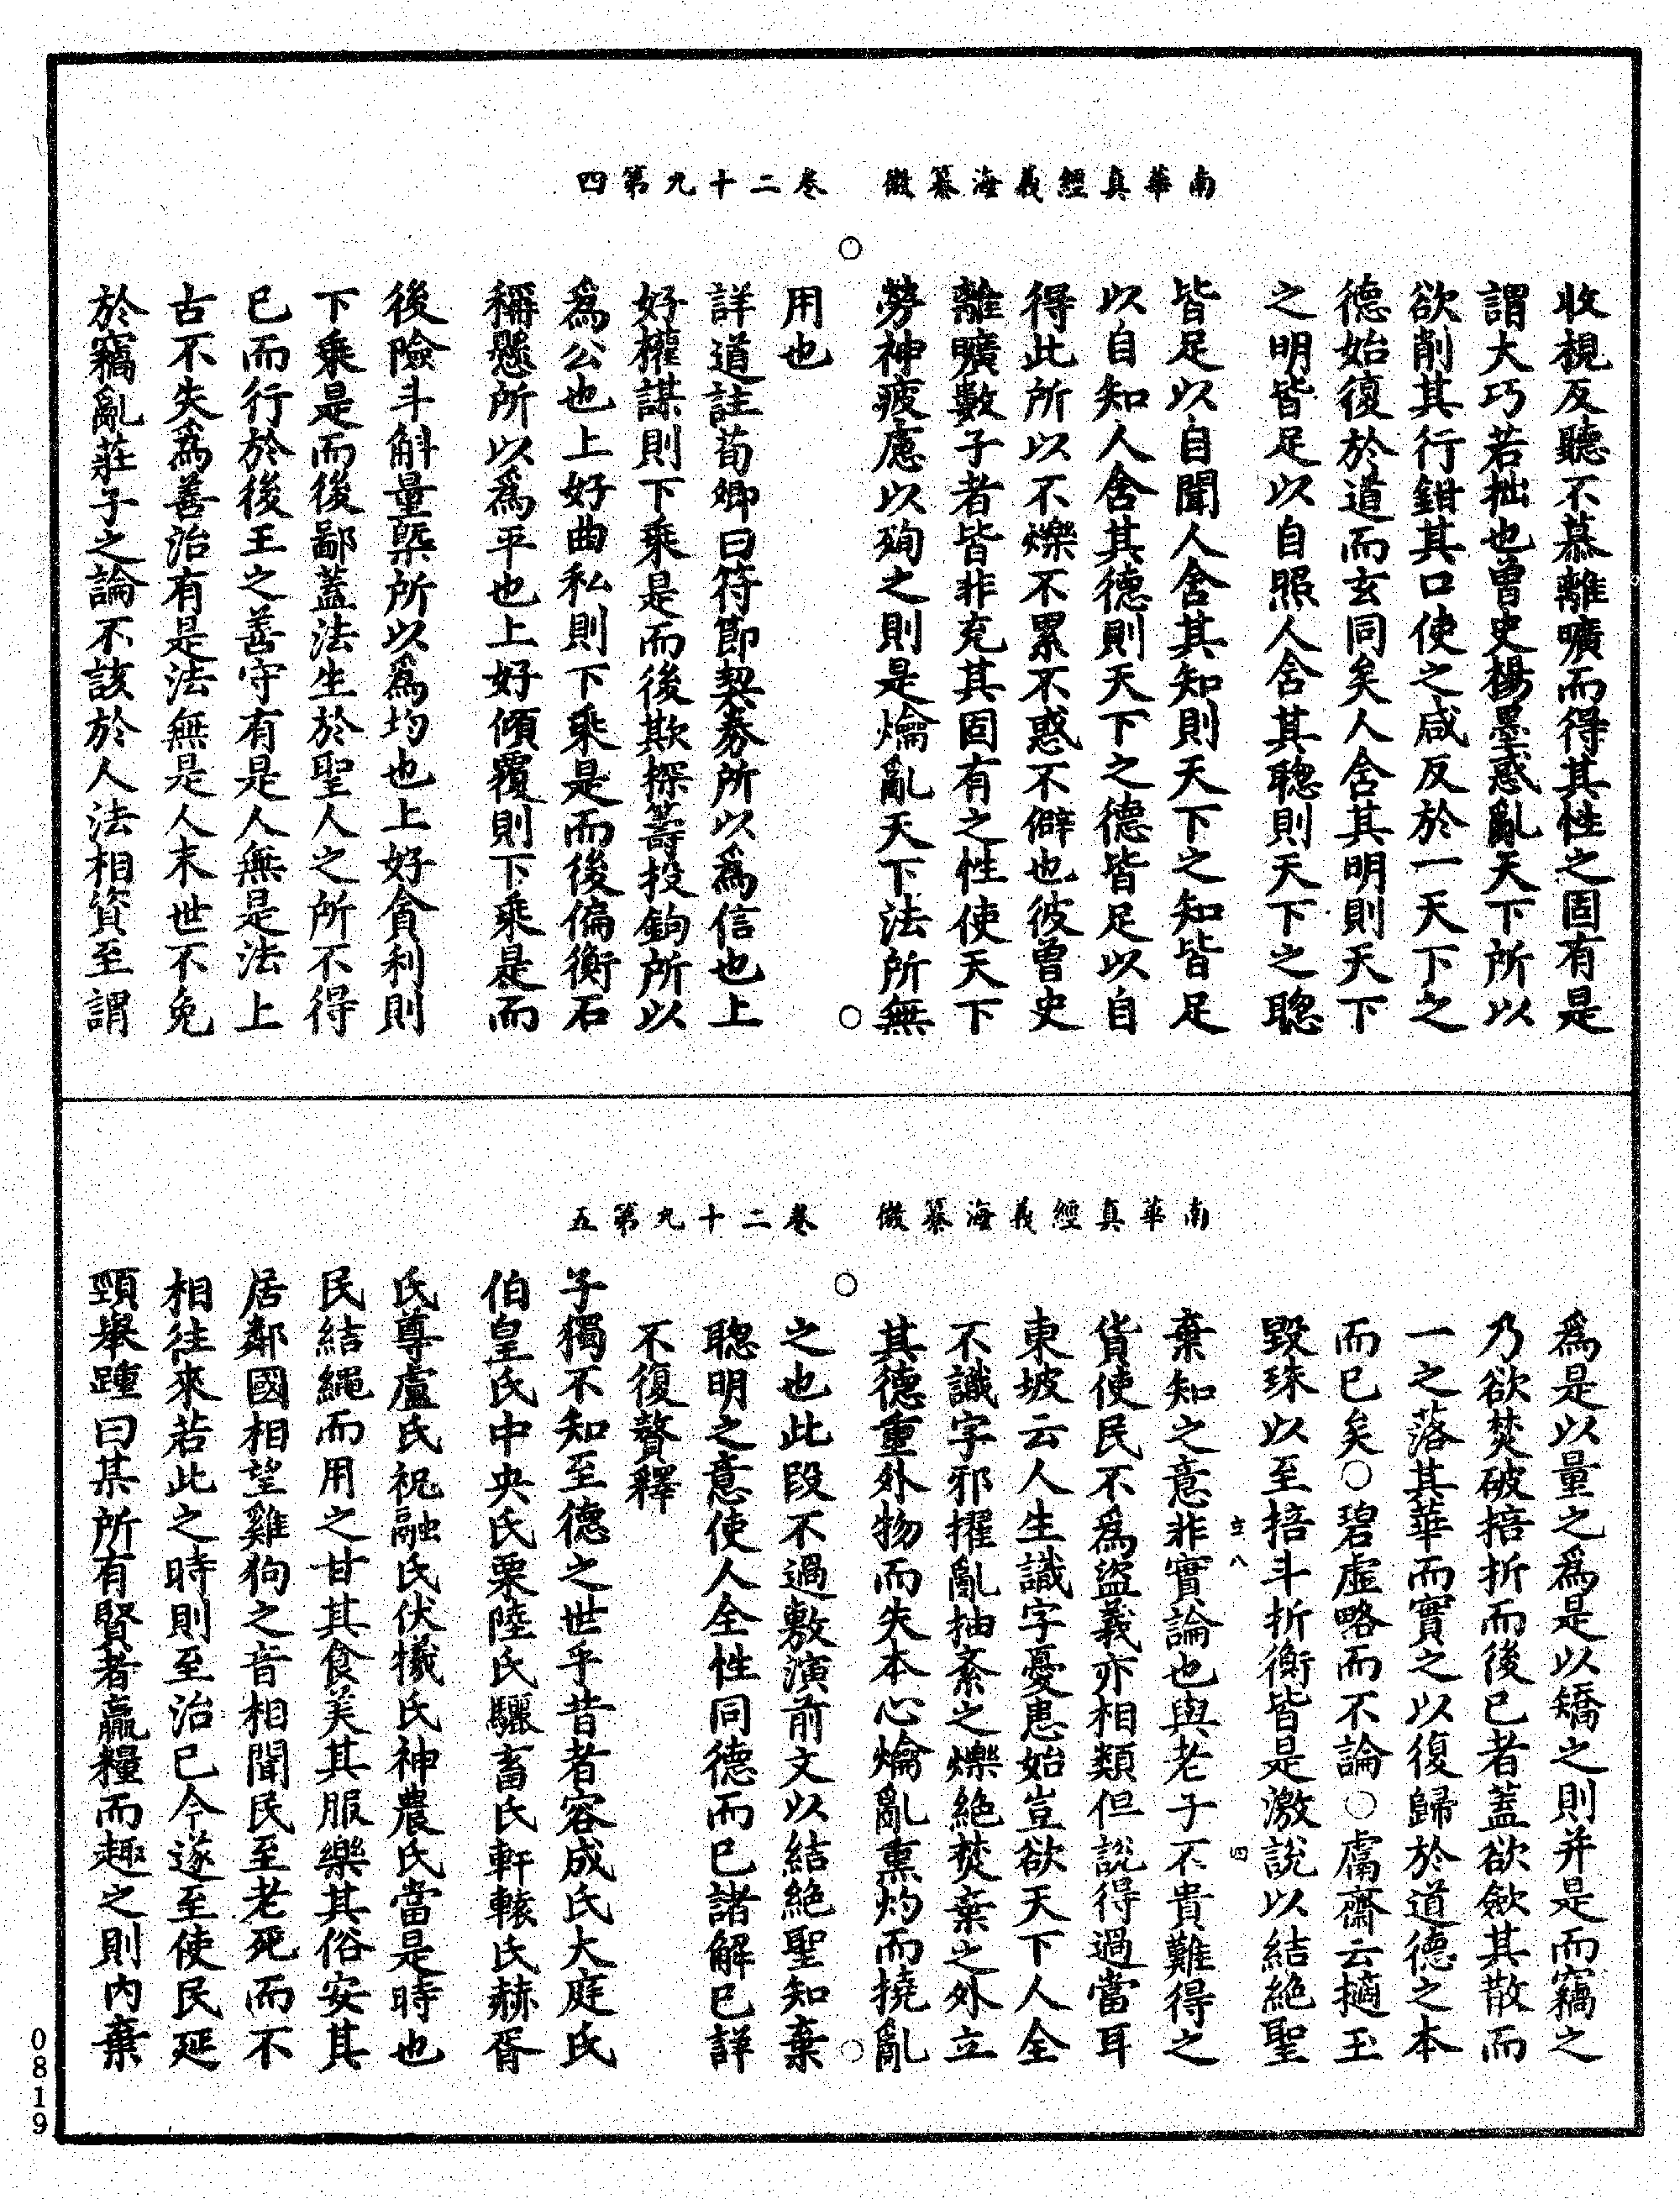 南華真經義海纂微　卷二十九第四
收視反聽不慕離曠而得其性之固有是
謂大巧若拙也曾史楊墨惑亂天下所以
欲削其行鉗其口使之咸反於一天下之
德始復於道而玄同矣人含其明則天下
之明皆足以自照人含其聰則天下之聰
皆足以自聞人含其知則天下之知皆足
以自知人含其德則天下之德皆足以自
得此所以不爍不累不惑不僻也彼曾史
離曠數子者皆非克其固有之性使天下
勞神疲慮以殉之則是爚亂天下法所無
用也
詳道註荀卿曰符節契券所以爲信也上
好權謀則下乘是而後欺探籌投鉤所以
爲公也上好曲私則下乘是而後偏衡石
稱懸所以爲平也上好傾覆則下乘是而
後險斗斛量槩所以爲均也上好貪利則
下乘是而後鄙蓋法生於聖人之所不得
已而行於後王之善守有是人無是法上
古不失爲善治有是法無是人末世不免
於竊亂莊子之論不該於人法相資至謂
南華真經義海纂微　卷二十九第五
爲是以量之爲是以矯之則并是而竊之
乃欲焚破掊折而後已者蓋欲歛其散而
一之落其華而實之以復歸於道德之本
而已矣○碧虛略而不論○鬳齋云擿玉
毀珠以至掊斗折衡皆是激說以結絕聖
棄知之意非實論也與老子不貴難得之
貨使民不爲盜義亦相類但說得過當耳
東坡云人生識字憂患始豈欲天下人全
不識字邪擢亂抽紊之爍絕焚棄之外立
其德重外物而失本心爚亂熏灼而撓亂
之也此段不過敷演前文以結絕聖知棄
聰明之意使人全性同德而已諸解已詳
不復贅釋
子獨不知至德之世乎昔者容成氏大庭氏
伯皇氏中央氏栗陸氏驪畜氏軒轅氏赫胥
氏尊盧氏祝融氏伏犧氏神農氏當是時也
民結繩而用之甘其食美其服樂其俗安其
居鄰國相望雞狗之音相聞民至老死而不
相往來若此之時則至治已今遂至使民延
頸舉踵曰某所有賢者贏糧而趣之則內棄
立八
四
0819